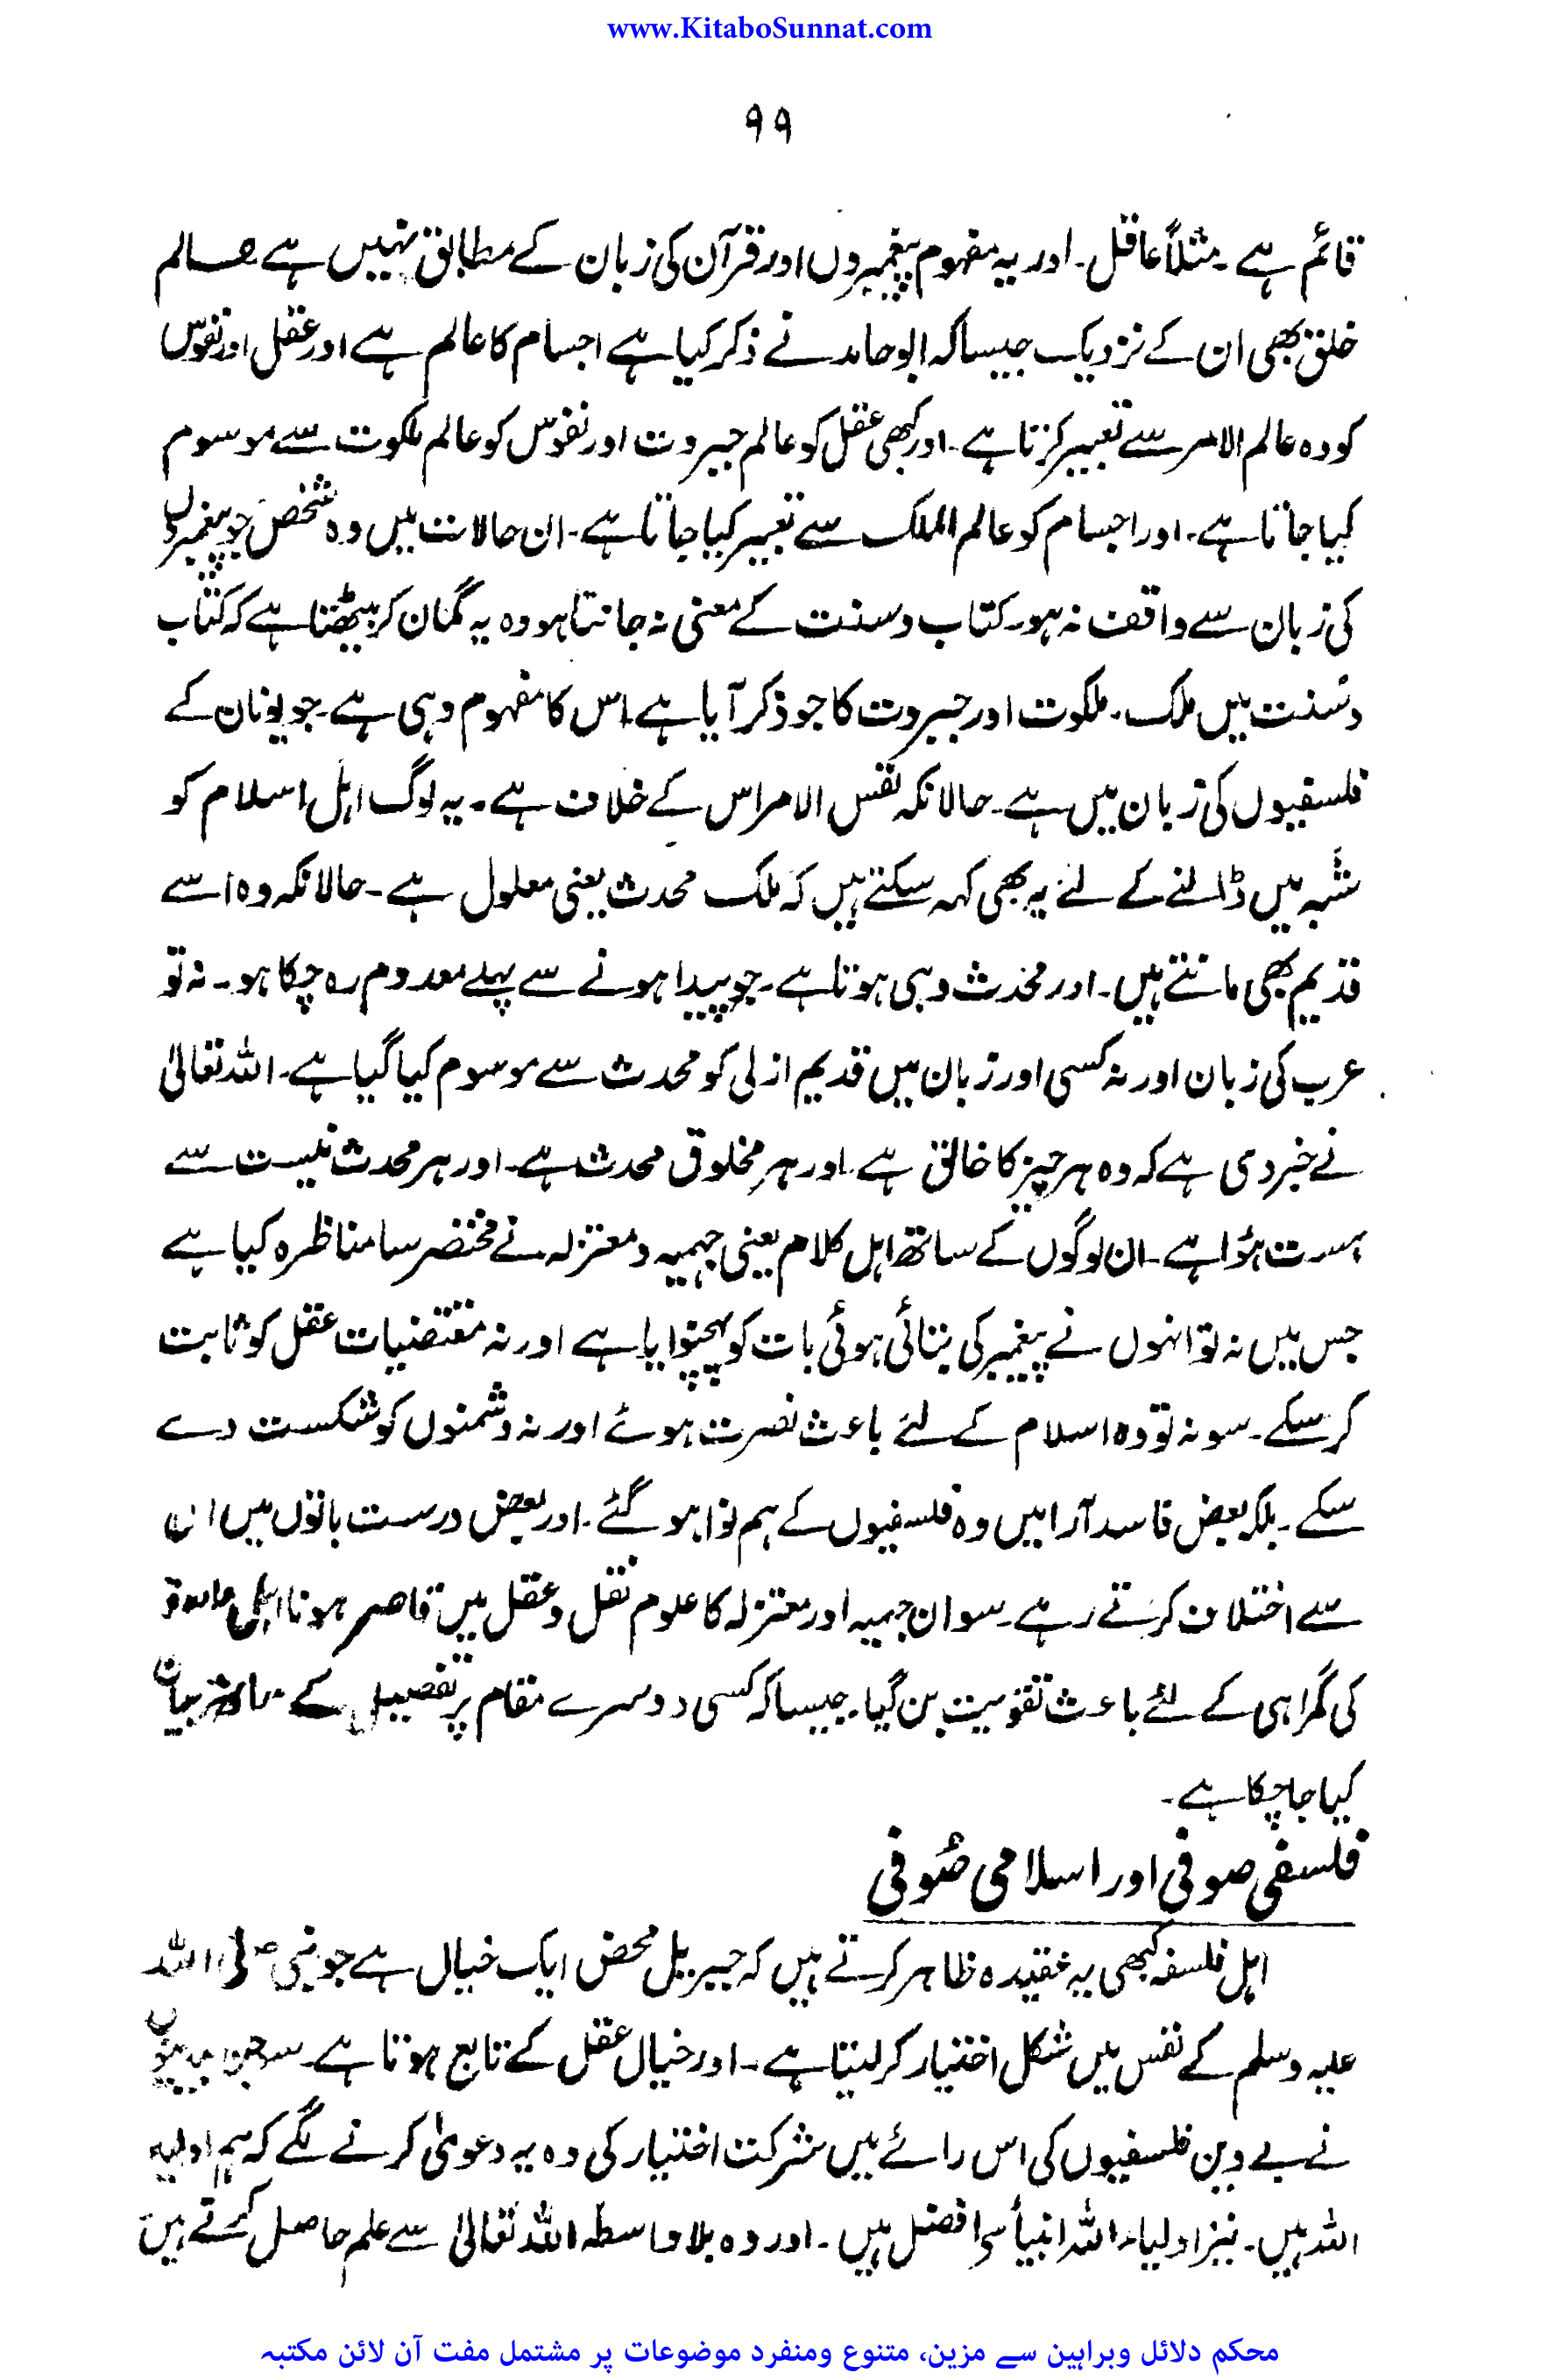 www.KitaboSunnat.com
۹۹
قائم ہے۔ مثلاً عاقل۔ اور یہ مفہوم پیغمبروں اور قرآن کی زبان کے مطابق نہیں ہے عالم
خلق بھی ان کے نزدیک جیسا کہ ابو حامد نے ذکر کیا ہے اجسام کا عالم ہے اور عقل اور نفوس
کو وہ عالم الامر سے تعبیر کرتا ہے۔ اور کبھی عقل کو عالم جبروت اور نفوس کو عالم ملکوت سے موسوم
کیا جاتا ہے۔ اور اجسام کو عالم الملک سے تعبیر کیا جاتا ہے۔ ان حالات میں وہ شخص جو پیغمبروں
کی زبان سے واقف نہ ہو۔ کتاب و سنت کے معنی نہ جانتا ہو وہ یہ گمان کر بیٹھتا ہے کہ کتاب
و سُنت میں ملک۔ ملکوت اور جبروت کا جو ذکر آیا ہے۔ اس کا مفہوم وہی ہے۔ جو یونان کے
فلسفیوں کی زبان میں ہے۔ حالانکہ نفس الامر اس کے خلاف ہے۔ یہ لوگ اہل اسلام کو
شبہ میں ڈالنے کے لئے یہ بھی کہہ سکتے ہیں کہ ملک محدث یعنی معلول ہے۔ حالانکہ وہ اسے
قدیم بھی مانتے ہیں۔ اور محدث وہی ہوتا ہے۔ جو پیدا ہونے سے پہلے معدوم رہ چکا ہو۔ نہ تو
عرب کی زبان اور نہ کسی اور زبان میں قدیم ازلی کو محدث سے موسوم کیا گیا ہے۔ اللہ تعالیٰ
نے خبر دی ہے کہ وہ ہر چیز کا خالق ہے۔ اور ہر مخلوق محدث ہے۔ اور ہر محدث نیست سے
ہست ہؤا ہے۔ ان لوگوں کے ساتھ اہل کلام یعنی جہمیہ و معتزلہ نے مختصر سا مناظرہ کیا ہے
جس میں نہ تو انہوں نے پیغمبر کی بتائی ہوئی بات کو پہنچوایا ہے اور نہ مقتضیات عقل کو ثابت
کر سکے۔ سو نہ تو وہ اسلام کے لئے باعث نصرت ہوئے اور نہ دشمنوں کو شکست دے
سکے۔ بلکہ بعض فاسد آرا میں وہ فلسفیوں کے ہم نوا ہو گئے۔ اور بعض درست باتوں میں ان
سے اختلاف کرتے رہے۔ سو ان جہمیہ اور معتزلہ کا علوم نقل و عقل میں قاصر ہونا
کی گمراہی کے لئے باعث تقویت بن گیا۔ جیسا کہ کسی دوسرے مقام پر تفصیل کے ساتھ بیان
کیا جا چکا ہے۔
فلسفی صوفی اور اسلامی صُوفی
اہل فلسفہ کبھی یہ عقیدہ ظاہر کرتے ہیں کہ جبریل محض ایک خیال ہے جو نبی صلی اللہ
علیہ وسلم کے نفس میں شکل اختیار کر لیتا ہے۔ اور خیال عقل کے تابع ہوتا ہے۔
نے بے دین فلسفیوں کی اس رائے میں شرکت اختیار کی وہ یہ دعویٰ کرنے لگے کہ ہم اولیاء
اللہ ہیں۔ نیز اولیاء اللہ انبیأ سے افضل ہیں۔ اور وہ بلا واسطہ اللہ تعالیٰ سے علم حاصل کرتے ہیں
محکم دلائل وبراہین سے مزین، متنوع ومنفرد موضوعات پر مشتمل مفت آن لائن مکتبہ